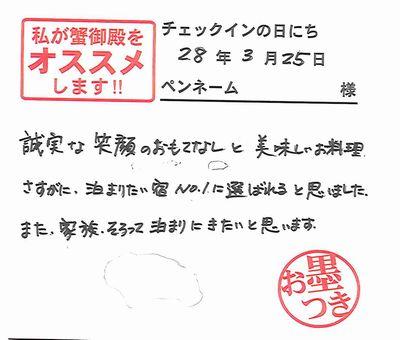 私が蟹御殿を
オススメ
します!!
チェックインの日にち
28 年 3 月 25 日
ペンネーム 様
誠実な笑顔のおもてなしと美味しいお料理
さすがに、泊まりたい宿 No.1に選ばれると思いました。
また、家族、そろって泊まりにきたいと思います。
お墨
つき